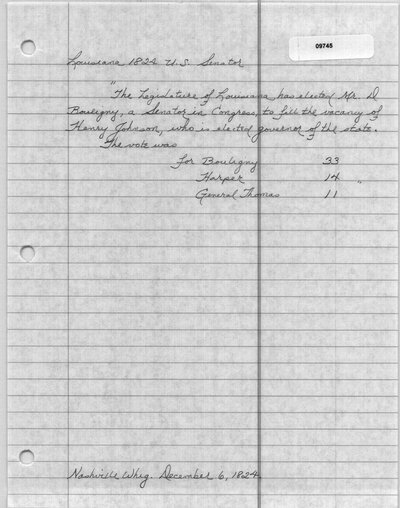 09745
Louisiana 1824 U.S. Senator
"The Legislature of Louisiana has elected Mr. D
Bouligny, a Senator in Congress, to fill the vacancy of
Henry Johnson, who is elected governor of the state.
The vote was
for Bouligny 33
Harper 14
General Thomas 11 "
Nashville Whig. December 6, 1824